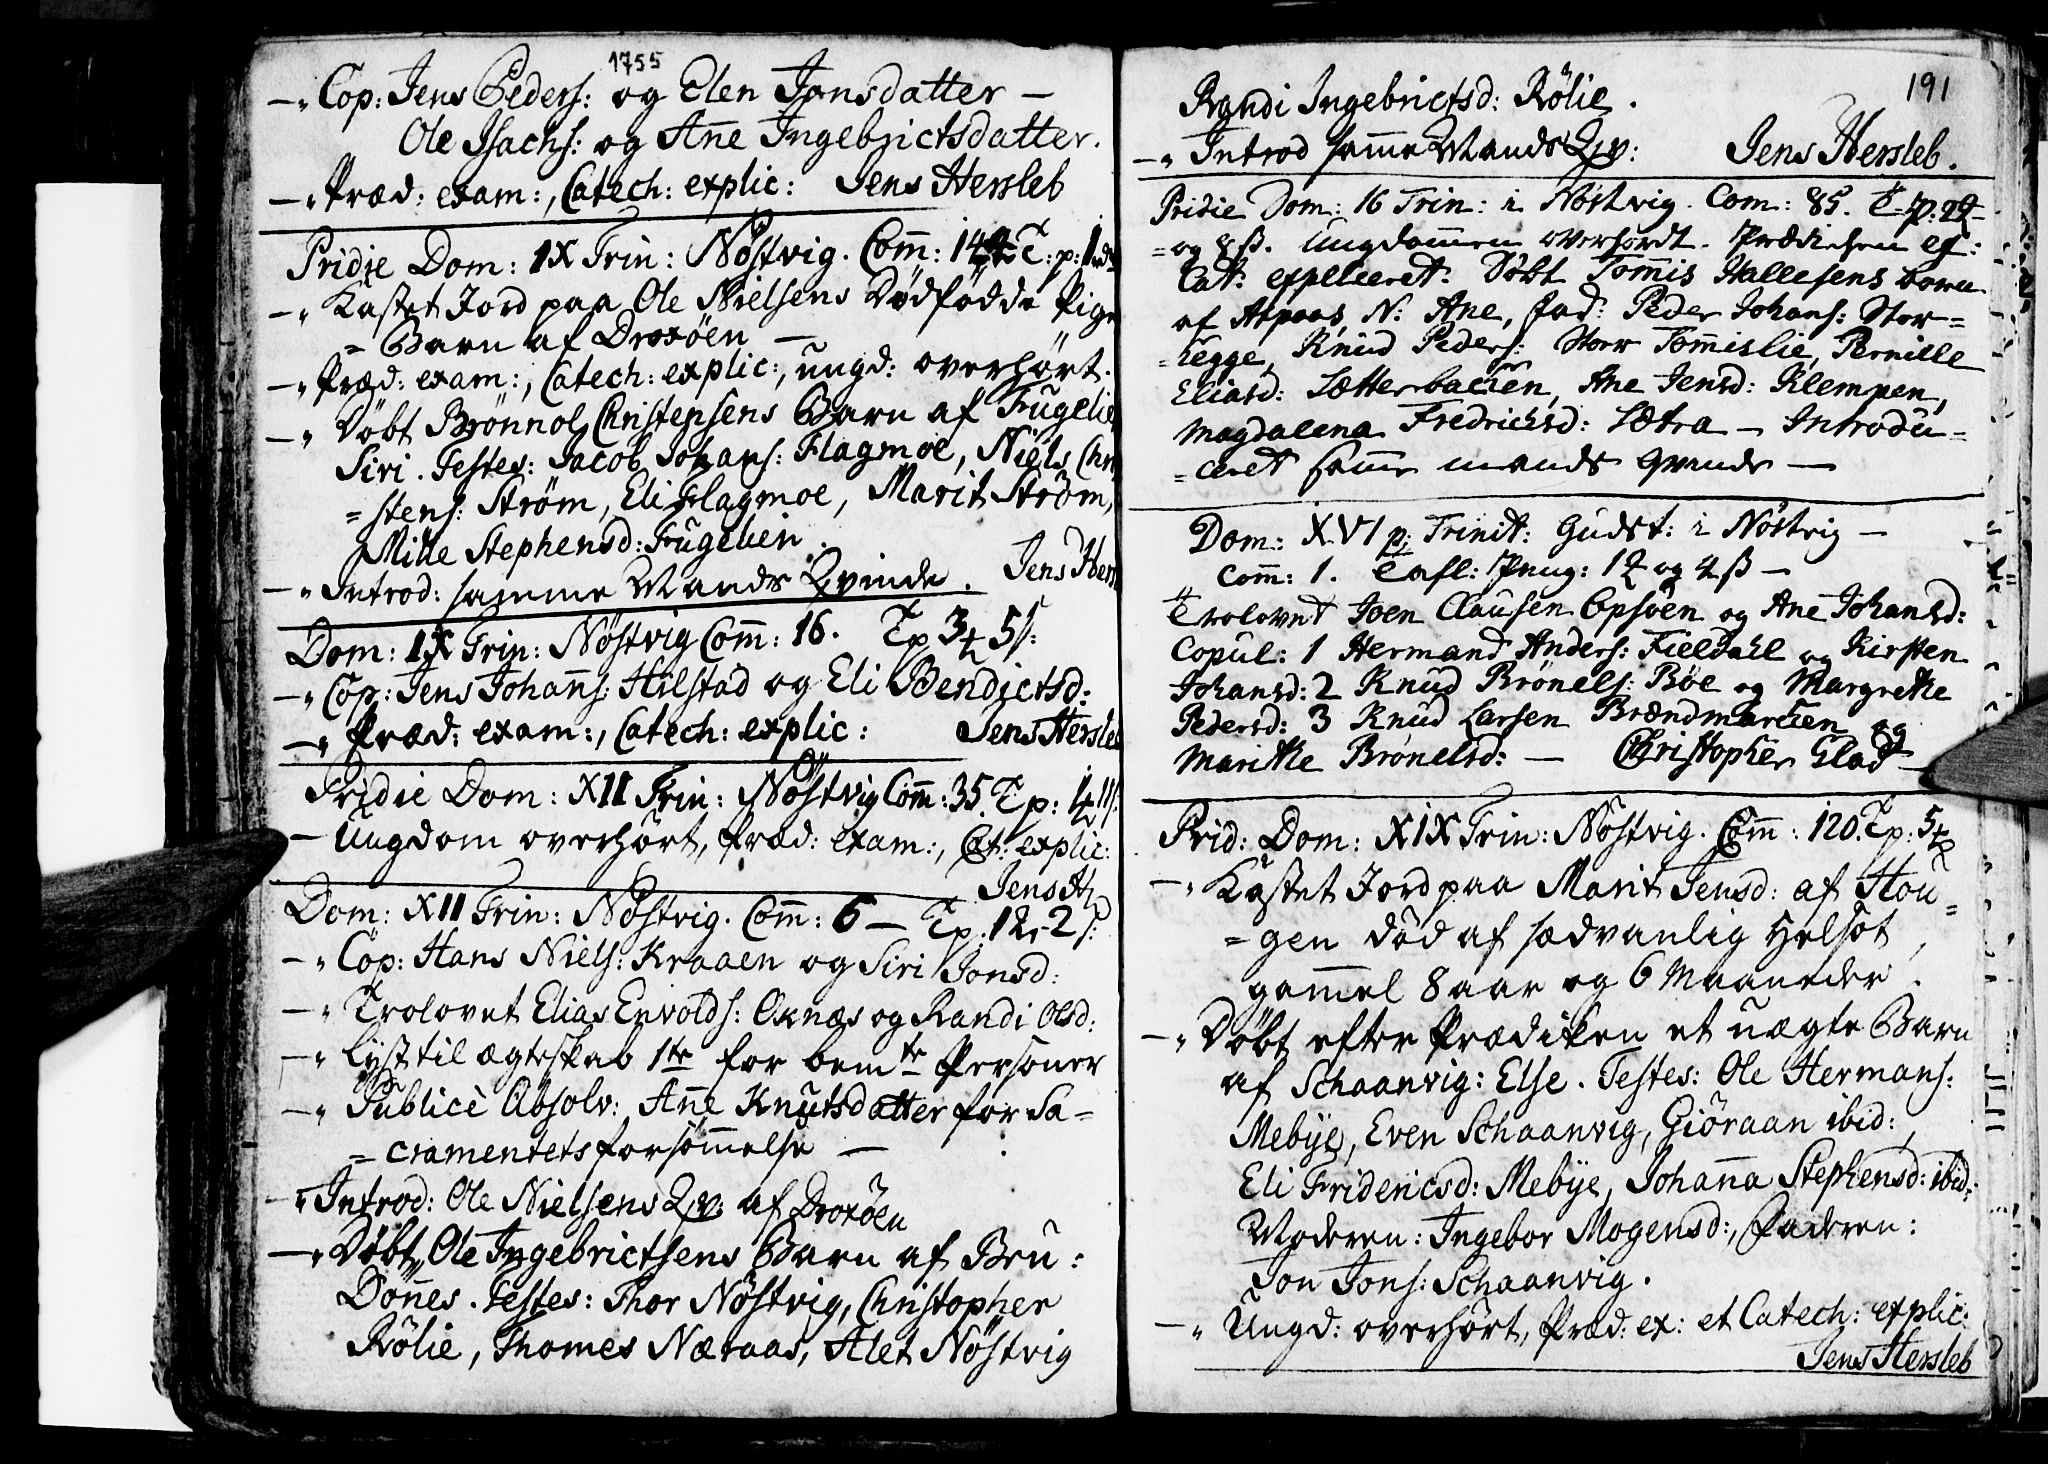 1755
—„ Cop: Jens Peders: og Elen Jonsdatter —
Ole Isachs: og Ane Ingebrictsdatter.
—„ Præd: exam:, Catech: explic: Jens Hersleb
Pridie Dom: IX Trin: Nöstvig. Com̄: 144 T: p: 1
—„ Kastet Jord paa Ole Nielsens Dødfødde Pige
= Barn af Droxöen —
—„ Præd: exam:, Catech: explic:, ungd: overhört.
—„ Döbt Brönnol Christensens Barn af Fugelie
Siri. Testes: Jacob Johans: Flagmoe, Niels Chri
= stens: Ström, Eli Flagmoe, Marit Ström,
Mille Stephensd: Fugelien.
—„ Introd: samme Mands Qvinde. Jens Hers
Dom: IX Trin: Nöstvig Com̄: 16. Tp 3 5ß:
—„ Cop: Jens Johans: Hilstad og Eli Bendictsd:
—„ Præd: exam:, Catech: explic: Jens Hersleb
Pridie Dom: XII Trin: Nöstvig Com̄: 35. Tp: 11ß
— Ungdom overhört, Præd: exam:, Cat: explic:
Jens H
Dom: XII Trin: Nöstvig. Com̄: 6 — Tp: 12 2ß:
—„ Cop: Hans Niels: Kraaen og Siri Jonsd:
—„ Trolovet Elias Envolds: Oxnæs og Randi Olsd:
—„ Lyst til ægteskab 1te for bemte Personer
—„ Publicè Absolv: Ane Knutsdatter for Sa=
= cramentets forsömmelse —
—„ Introd: Ole Nielsens Qv: af Droxöen
—„ Döbt Ole Ingebrictsens Barn af Bru:
Dönnes. Testes: Thor Nöstvig, Christopher
Rölie, Thomes Næraas, Alet Nöstvig
191
Randi Ingebrictsd: Rölie.
—„ Introd samme Mands Qv: Jens Hersleb.
Pridie Dom: 16 Trin: i Nöstvig. Com: 85. T: p:
= og 8ß. Ungdommen overhördt. Prædiken og:
Cat: expliceret. Döbt Tom̄is Hallesens barn
af Aspaas N: Ane, fad: Peder Johans: Stor=
= regge, Knud Peders: Storr Tom̄islie, Pernille
Eliasd: Sætterbacken, Ane Jensd: Klempen,
Magdalena Fredrichsd: Sætra — Introdu=
= ceret samme mands qvinde —
Dom: XVI p: Trinit: Gudst: i Nöstvig —
com̄: 1. Tafl: Peng: 1 og 4ß —
Trolovet Joen Clausen Opsöen og Ane Johansd:
Copul: 1 Hermand Anders: Fieldahl og Kirsten
Johansd: 2 Knud Brönels: Böe og Margrethe
Pedersd: 3 Knud Larsen Brændmarcken og
Marithe Brönelsd: — Christopher Glad —
Prid: Dom: XIX Trin: Nöstvig. Com̄: 120. Tp: 5
—„ Kastet Jord paa Marit Jensd: af Hou=
= gen död af sædvanlig Helsot,
gammel 8 aar og 6 Maaneder.
—„ Döbt efter Prædiken et uægte Barn
af Schaanvig: Else. Testes: Ole Hermans:
Mebye, Even Schaanvig, Giöraan ibid:,
Eli Fridericsd: Mebye, Johanna Stephensd: ibid:
Moderen: Ingebor Mogensd:, Faderen:
Jon Jons: Schaanvig.
—„ Ungd: overhört, Præd: ex: et Catech: explic:
Jens Hersleb